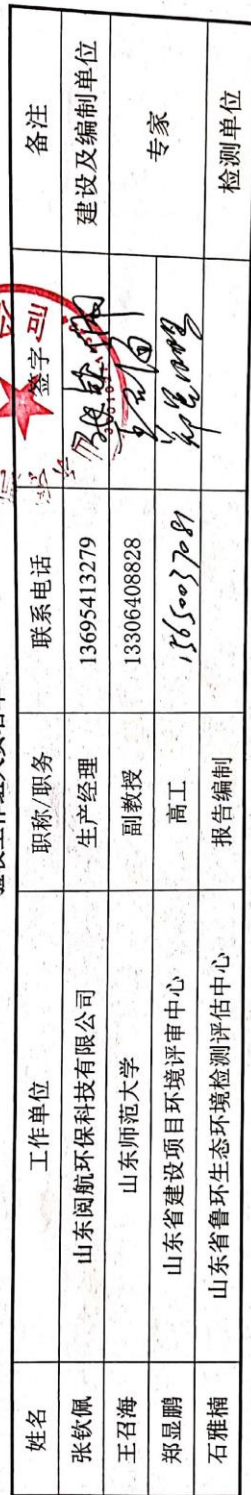 验收工作组人员名单
姓名 工作单位 职称/职务 联系电话 签字 备注
张钦佩 山东阅航环保科技有限公司 生产经理 13695413279 建设及编制单位
王召海 山东师范大学 副教授 13306408828 专家
郑显鹏 山东省建设项目环境评审中心 高工 15650037081 郑显鹏
石雅楠 山东省鲁环生态环境检测评估中心 报告编制 检测单位